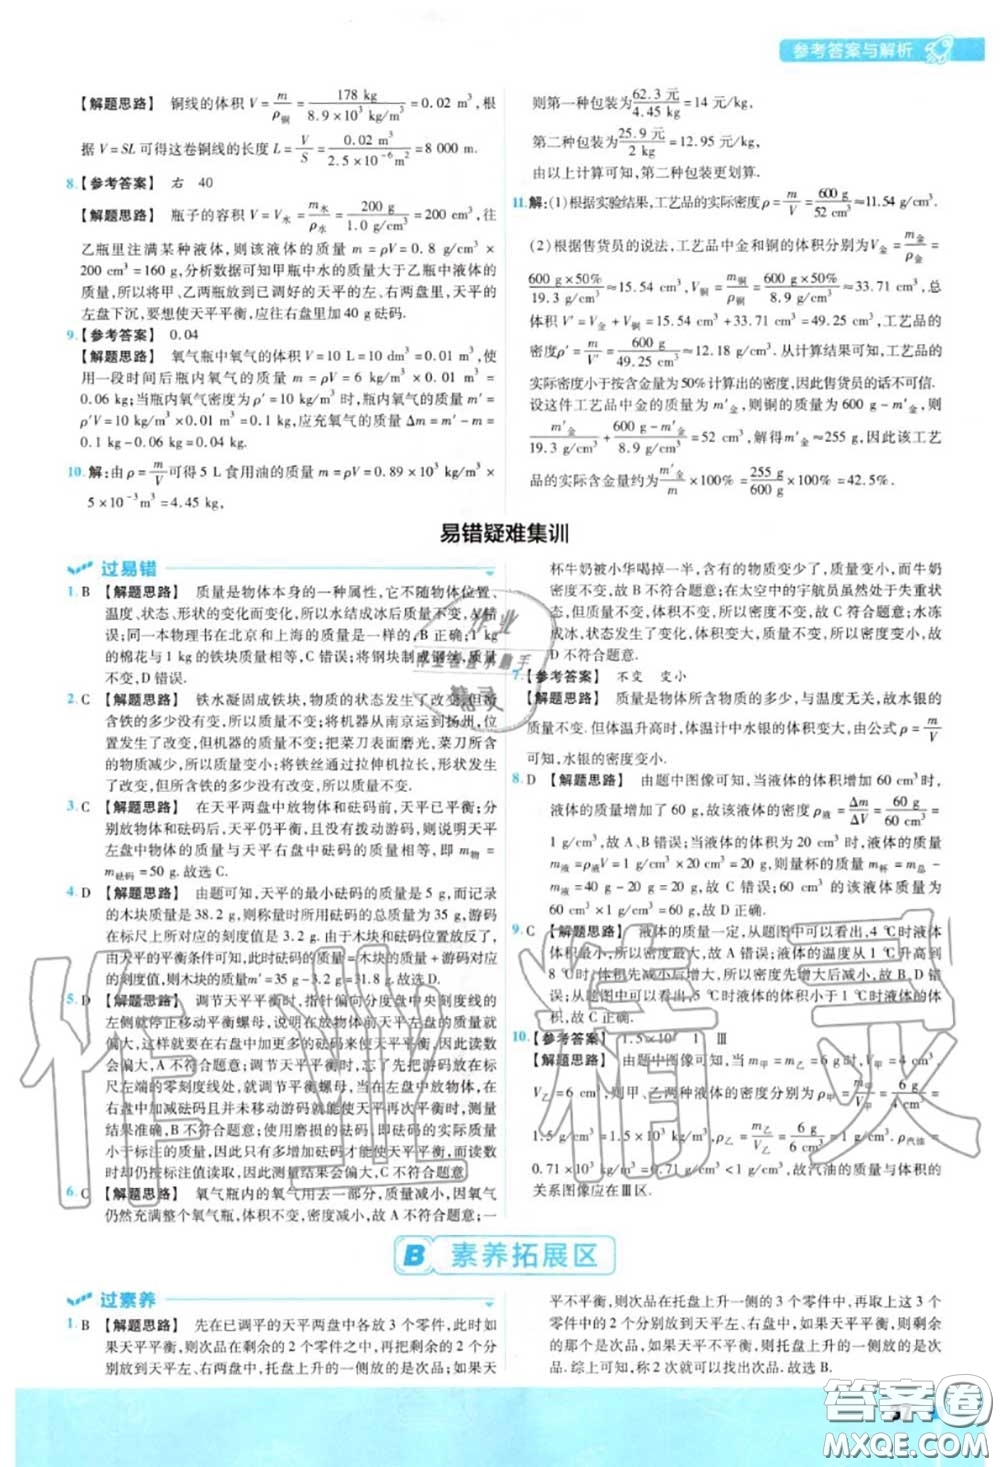 参考答案与解析
【解题思路】 铜线的体积 V = m/ρ铜 = 178 kg / 8.9×10³ kg/m³ = 0.02 m³,根
据 V = SL 可得这卷铜线的长度 L = V/S = 0.02 m³ / 2.5×10⁻⁶ m² = 8 000 m.
8. 【参考答案】 右 40
【解题思路】 瓶子的容积 V = V水 = m水/ρ水 = 200 g / 1.0 g/cm³ = 200 cm³,往
乙瓶里注满某种液体,则该液体的质量 m = ρV = 0.8 g/cm³ ×
200 cm³ = 160 g,分析数据可知甲瓶中水的质量大于乙瓶中液体的
质量,所以将甲、乙两瓶放到已调好的天平的左、右两盘里,天平的
左盘下沉,要想使天平平衡,应往右盘里加 40 g 砝码.
9. 【参考答案】 0.04
【解题思路】 氧气瓶中氧气的体积 V = 10 L = 10 dm³ = 0.01 m³,使
用一段时间后瓶内氧气的质量 m = ρV = 6 kg/m³ × 0.01 m³ =
0.06 kg;当瓶内氧气密度为 ρ' = 10 kg/m³ 时,瓶内氧气的质量 m' =
ρ'V = 10 kg/m³ × 0.01 m³ = 0.1 kg,应充氧气的质量 Δm = m' − m =
0.1 kg − 0.06 kg = 0.04 kg.
10. 解:由 ρ = m/V 可得 5 L 食用油的质量 m = ρV = 0.89 × 10³ kg/m³ ×
5 × 10⁻³ m³ = 4.45 kg,
则第一种包装为 62.3 元 / 4.45 kg = 14 元/kg,
第二种包装为 25.9 元 / 2 kg = 12.95 元/kg.
由以上计算可知,第二种包装更划算.
11. 解:(1)根据实验结果,工艺品的实际密度 ρ = m/V = 600 g / 52 cm³ ≈ 11.54 g/cm³.
(2)根据售货员的说法,工艺品中金和铜的体积分别为 V金 = m金/ρ金 =
600 g×50% / 19.3 g/cm³ ≈ 15.54 cm³, V铜 = m铜/ρ铜 = 600 g×50% / 8.9 g/cm³ ≈ 33.71 cm³,总
体积 V' = V金 + V铜 = 15.54 cm³ + 33.71 cm³ = 49.25 cm³,工艺品的
密度 ρ' = m/V' = 600 g / 49.25 cm³ ≈ 12.18 g/cm³.从计算结果可知,工艺品的
实际密度小于按含金量为 50% 计算出的密度,因此售货员的话不可信.
设这件工艺品中金的质量为 m'金,则铜的质量为 600 g − m'金,则
m'金 / 19.3 g/cm³ + 600 g − m'金 / 8.9 g/cm³ = 52 cm³,解得 m'金 ≈ 255 g,因此该工艺
品的实际含金量约为 m'金/m × 100% = 255 g / 600 g × 100% = 42.5%.
易错疑难集训
过易错
1. B 【解题思路】 质量是物体本身的一种属性,它不随物体的位置、
温度、状态、形状的变化而变化,所以水结成冰后质量不变,A 错
误;同一本物理书在北京和上海的质量是一样的,B 正确;1 kg
的棉花与 1 kg 的铁块质量相等,C 错误;将钢块制成钢丝,质量
不变,D 错误.
2. C 【解题思路】 铁水凝固成铁块,物质的状态发生了改变,但所
含铁的多少没有变化;将机器从南京运到扬州,位置
发生了改变,但机器的质量不变;把菜刀表面磨光,菜刀所含
的物质减少,所以质量变小;将铁丝通过拉伸机拉长,形状发生
了改变,但所含铁的多少没有发生改变,故质量不变.故选 C.
3. C 【解题思路】 在天平两盘中放物体和砝码前,天平已平衡;分
别放物体和砝码后,天平仍平衡,且没有拨动游码,则说明天平
左盘中物体的质量与天平右盘中砝码的质量相等,即 m物 =
m砝码 = 50 g.故选 C.
4. D 【解题思路】 由题可知,天平的最小砝码的质量是 5 g,而记录
的木块质量是 38.2 g,则称量时所用砝码的总质量为 35 g,游码
在标尺上所对应的刻度值是 3.2 g.由于木块与砝码位置放反了,
由天平的平衡条件可知,此时砝码的质量 = 木块的质量 + 游码对应
的刻度值,则木块的质量 m' = 35 g − 3.2 g = 31.8 g.故选 D.
5. D 【解题思路】 调节天平平衡时,指针偏向分度盘中央刻度线的
左侧就停止移动平衡螺母,说明在放物体前天平左盘的质量就
偏大,这样要在右盘中加更多的砝码来使天平平衡,因此读数
会偏大,A 不符合题意;使用天平时,若调节平衡前游码没有放在
标尺左端的零刻度线处,就调节平衡螺母使天平平衡,在
右盘中加减砝码且并未移动游码就能使天平平衡时,测量
结果准确,B 不符合题意;使用磨损的砝码,即砝码的实际质量
小于标注的质量,因此需要增加砝码才能使天平平衡,读数时
仍以按标注值读取,因此测量结果会偏大,C 不符合题意.
6. C 【解题思路】 氧气瓶内的氧气用去一部分,质量减小,因氧气
仍然充满整个氧气瓶,体积不变,密度减小,故 A 不符合题意;一
杯牛奶被小华喝掉一半,含有的物质变少了,质量变小,而牛奶
密度不变,故 B 不符合题意;在太空中的宇航员虽然处于失重状
态,但质量不变,体积不变,所以密度不变,故 C 符合题意;水冻
成冰,状态变化,质量不变,体积变大,所以密度变小,
故 D 不符合题意.
7. 【参考答案】 不变 变小
【解题思路】 质量是物体所含物质的多少,与温度无关,故水银的
质量不变.但体温升高时,体温计中水银的体积变大,由公式 ρ = m/V
可知,水银的密度变小.
8. D 【解题思路】 由题中图像可知,当液体的体积增加 60 cm³ 时,
液体的质量增加了 60 g,故该液体的密度 ρ液 = Δm/ΔV = 60 g / 60 cm³ =
1 g/cm³,故 A、B 错误;当液体的体积为 20 cm³ 时,液体的质量
m液 = ρ液V = 1 g/cm³ × 20 cm³ = 20 g,则量杯的质量 m杯 = m总 −
m液 = 40 g − 20 g = 20 g,故 C 错误;60 cm³ 的该液体质量
为 60 g,故 D 正确.
9. C 【解题思路】 液体的质量一定,从题图中可以看出,4 ℃时液体
体积最小,所以密度最大,故 A 错误;液体的温度从 4 ℃升高到
8 ℃时,体积变大,质量不变,所以密度变小,故 B、D 错
误;从题图中可以看出,5 ℃时液体的体积小于 1 ℃时液体的体
积,故 C 正确.
10. 【参考答案】 1.5×10³ 1 Ⅲ
【解题思路】 由题图可知,当 m甲 = m乙 = 6 g 时,V甲 = 4 cm³,
V乙 = 6 cm³,则甲、乙两种液体的密度分别为 ρ甲 = m甲/V甲 = 6 g / 4 cm³ =
1.5 g/cm³ = 1.5×10³ kg/m³, ρ乙 = m乙/V乙 = 6 g / 6 cm³ = 1 g/cm³, ρ汽油 =
0.71×10³ kg/m³ = 0.71 g/cm³ < 1 g/cm³,故汽油的质量与体积的
关系图像应在Ⅲ区.
B 素养拓展区
过素养
1. B 【解题思路】 先在已调平的天平两盘中各放 3 个零件,此时如
果天平平衡,则次品在剩余的 2 个零件之中,再将剩余的 2 个分
别放到天平左、右两盘中,托盘上升的一侧放的是次品;如果天
平不平衡,则次品在托盘上升一侧的 3 个零件中,再取上这 3 个
零件中的 2 个分别放到天平左、右盘,如果天平平衡,则说明剩
余的那个是次品,如果天平不平衡,则托盘上升的一侧放的零件
是次品.综上可知,称 2 次就可以找出次品.故选 B.
作业
精灵
作业精灵
答案圈
MXQE.COM